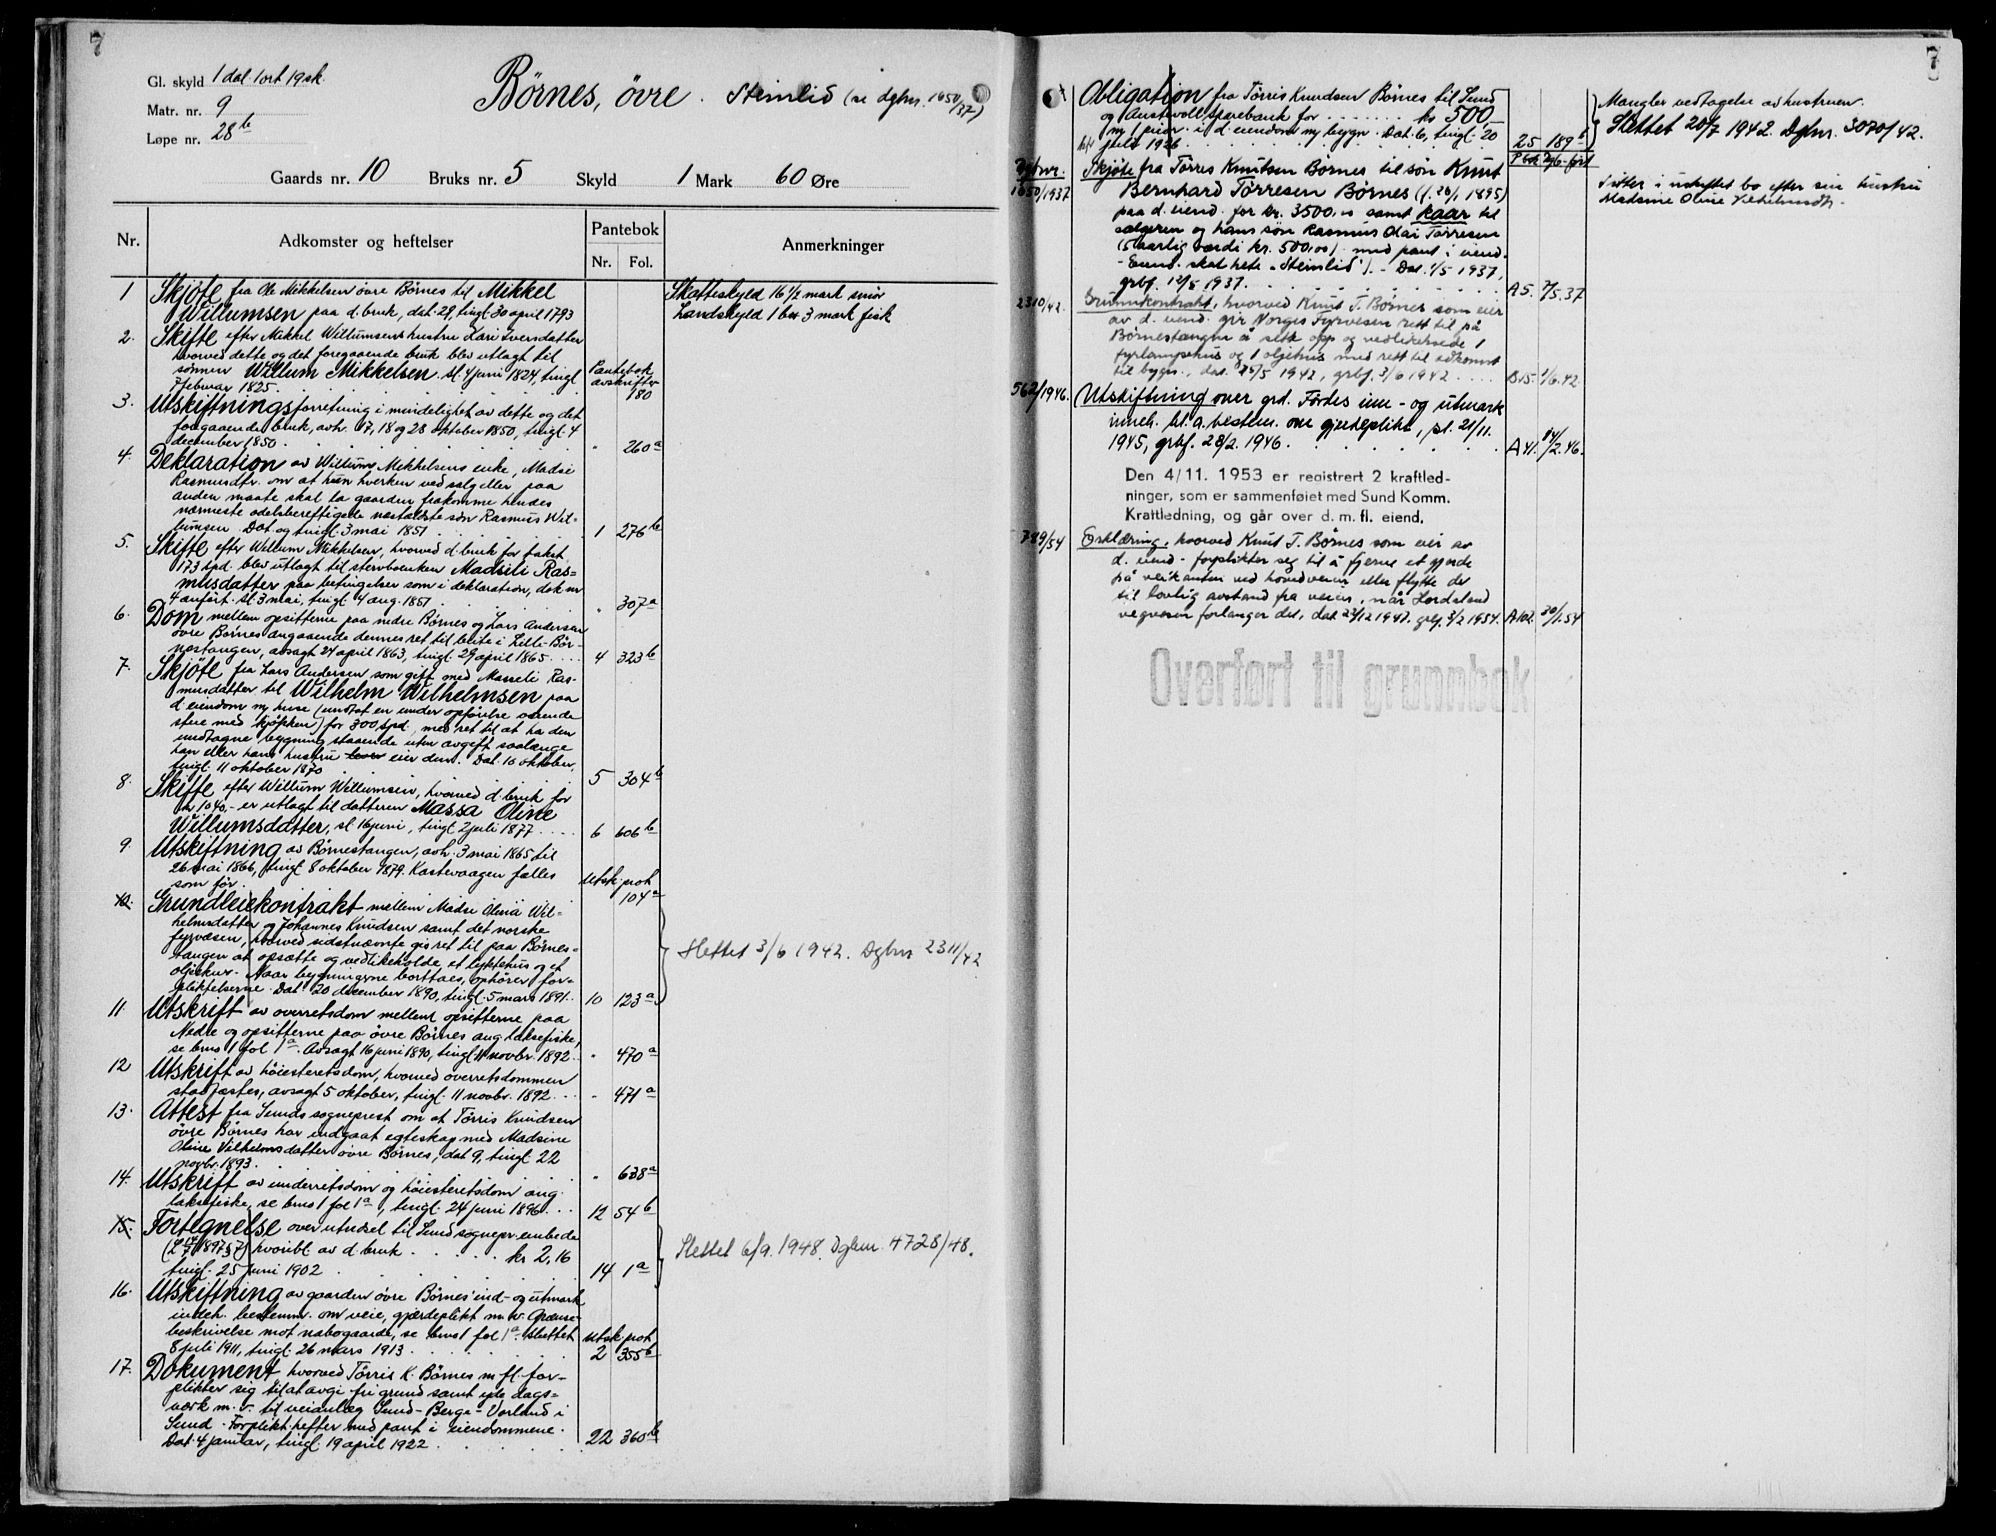 7
Gl. skyld 1 dal 1 ort 19 sk.
Matr. nr. 9
Løpe nr. 28 b
Börnes, övre. Steinlid (se dgbnr. 1650/37)
Gaards nr. 10 Bruks nr. 5 Skyld 1 Mark 60 Øre
Nr. Adkomster og heftelser Pantebok Anmerkninger
Nr. Fol.
1 Skjöte fra Ole Mikkelsen övre Börnes til Mikkel
Willumsen paa d. bruk, dat. 29, tingl. 30 april 1793
Skatteskyld 16 1/2 mark smör
Landskyld 1 3 mark fisk
2. Skifte efter Mikkel Willumsens hustru Kari Iversdatter
hvorved dette og det foregaaende bruk blev utlagt til
sönnen Willum Mikkelsen. sl. 4 juni 1824, tingl.
7 februar 1825. Pantebok avskrifter 180
3. Utskiftningsforretning i mindelighet av dette og det
foregaaende bruk, avh. 17, 18 og 28 oktober 1850, tingl. 4
december 1850. " 260 a
4. Deklaration av Willum Mikkelsens enke, Madsi
Rasmusdtr. om at hun hverken ved salg eller paa
anden maate skal la gaarden frakomme hendes
nærmeste odelsberettigede næstældste sön Rasmus Wil-
lumsen. Dat. og tingl. 3 mai 1851 1 276 b
5. Skifte efter Willum Mikkelsen, hvorved d. bruk for takst
173 spd. blev utlagt til stervboenken Madsili Ras-
musdatter paa betingelser som i deklaration, dok nr
4 anfört. sl. 3 mai, tingl. 4 aug. 1851 " 307 a
6. Dom mellem opsitterne paa nedre Börnes og Lars Andersen
övre Börnes angaaende dennes ret til beite i Lille-Bör-
nestangen, avsagt 24 april 1863, tingl. 29 april 1865 4 323 b
7. Skjöte fra Lars Andersen som gift med Masseli Ras-
musdatter til Wilhelm Wilhelmsen paa
d. eiendom m/ huse (undtat en under opförelse værende
stue med kjökken) for 300 spd., med ret til at ha den
undtagne bygning staaende uten avgift saalænge
han eller hans hustru lever eier den. Dat. 10 oktober,
tingl. 11 oktober 1870 5 304 b
8. Skifte efter Willum Willumsen, hvorved d. bruk for
kr 1040,- er utlagt til datteren Massa Oline
Willumsdatter, sl. 16 juni, tingl. 2 juli 1877 6 606 b
9 Utskiftning av Börnestangen, avh. 3 mai 1865 til
26 mai 1866, tingl. 8 oktober 1879. Kastevaagen fælles
som för. Utsk. prot. 104 a
10. Grundleiekontrakt mellem Madsi Olina Wil-
helmsdatter og Johannes Knudsen samt det norske
fyrvæsen, hvorved sidstnævnte gis ret til paa Börnes-
tangen at opsætte og vedlikeholde et lyktehus og et
oljeskur. Naar bygningerne borttaes, ophörer for-
pliktelserne. Dat. 20 december 1890, tingl. 5 mars 1891. 10 123 a
Slettet 3/6 1942. Dgbnr 2311/42
11. Utskrift av overretsdom mellem opsitterne paa
Nedre og opsitterne paa övre Börnes ang. laksefiske,
se bnr 1 fol 1 a. Avsagt 16 juni 1890, tingl. 11 novbr. 1892. " 470 a
12 Utskrift av höiesteretsdom, hvorved overretsdommen
stadfæstes, avsagt 5 oktober, tingl. 11 novbr. 1892. " 471 a
13. Attest fra Sunds sogneprest om at Törris Knudsen
övre Börnes har indgaat egteskap med Madsine
Oline Vilhelmsdatter övre Börnes, dat. 9, tingl 22
novbr. 1893. " 638 a
14. Utskrift av underretsdom og höiesteretsdom ang.
laksefiske, se bnr 1 fol 1 a, tingl. 24 juni 1896. 12 54 b
15. Fortegnelse over utydsel til Sund sognepr. embede
1897 § 7) hvoriblt. av d. bruk kr 2,16
tingl. 25 juni 1902 14 1 a
Slettet 6/9. 1948. Dgbnr. 4728/48.
16. Utskiftning av gaarden övre Börnes' ind- og utmark
indeh. bestemm. om veie, gjærdeplikt m.v. Grænse-
beskrivelse mot nabogaarde, se bnr 1 fol 1 a. Sluttet
8 juli 1911, tingl. 26 mars 1913. Utsk. prot. 2 355 b
17. Dokument hvorved Törris K. Börnes m. fl. for-
plikter sig til at avgi fri grund samt yde dags-
verk m.v. til veianlæg Sund-Berge-Vorland i
Sund. Forplikt. hefter med pant i eiendommene.
Dat. 4 januar, tingl. 19 april 1922. 22 360 b
7
Obligation fra Törris Knudsen Börnes til Sund
og Austevoll Sparebank for kr 500
m/ 1 prior. i d. eiendom m/ bygn. Dat. 6, tingl. 20
juli 1926 25 189 b
Mangler vedtagelse av hustruen.
Slettet 20/7 1942. Dgbnr. 3070/42.
Dgbnr. P bok Dgb-ført
1650/1937 Skjöte fra Törres Knutsen Börnes til sön Knut
Bernhard Törresen Börnes (f. 26/1 1895)
paa d. eiend. for kr. 3500,00 samt kaar til
sælgeren og hans sön Rasmus Olai Törresen
(5 aarlig værdi kr. 500,00) med pant i eiend.
- Eiend. skal hete "Steinlid". - Dat. 1/5 1937,
grbf. 12/5 1937. A 5. 7/5.37
Sitter i uskiftet bo efter sin hustru
Madsine Oline Vilhelmsdtr.
2310/42. Grunnkontrakt, hvorved Knut T. Börnes som eier
av d. eiend. gir Norges Fyrvesen rett til på
Börnestangen å sette opp og vedlikeholde 1
fyrlampehus og 1 oljehus med rett til adkomst
til bygn., dat. 15/5 1942, grbf. 3/6 1942. B 15. 1/6.42
562/1946. Utskiftning over grd. Fördes inn- og utmark
inneh. bl. a. bestem. om gjerdeplikt, sl. 21/11.
1945, grbf. 28/2. 1946. A 41. 14/2.46.
Den 4/11. 1953 er registrert 2 kraftled-
ninger, som er sammenføiet med Sund Komm.
Kraftledning, og går over d. m. fl. eiend.
789/54 Erklæring, hvorved Knut T. Börnes som eier av
d. eiend. forplikter seg til å fjerne et gjerde
på veikanten ved hovedveien eller flytte det
til lovlig avstand fra veien, når Hordaland
vegvesen forlanger det, dat. 23/12 1947. grbf. 3/2 1954. A 102. 30/1.54
Overført til grunnbok